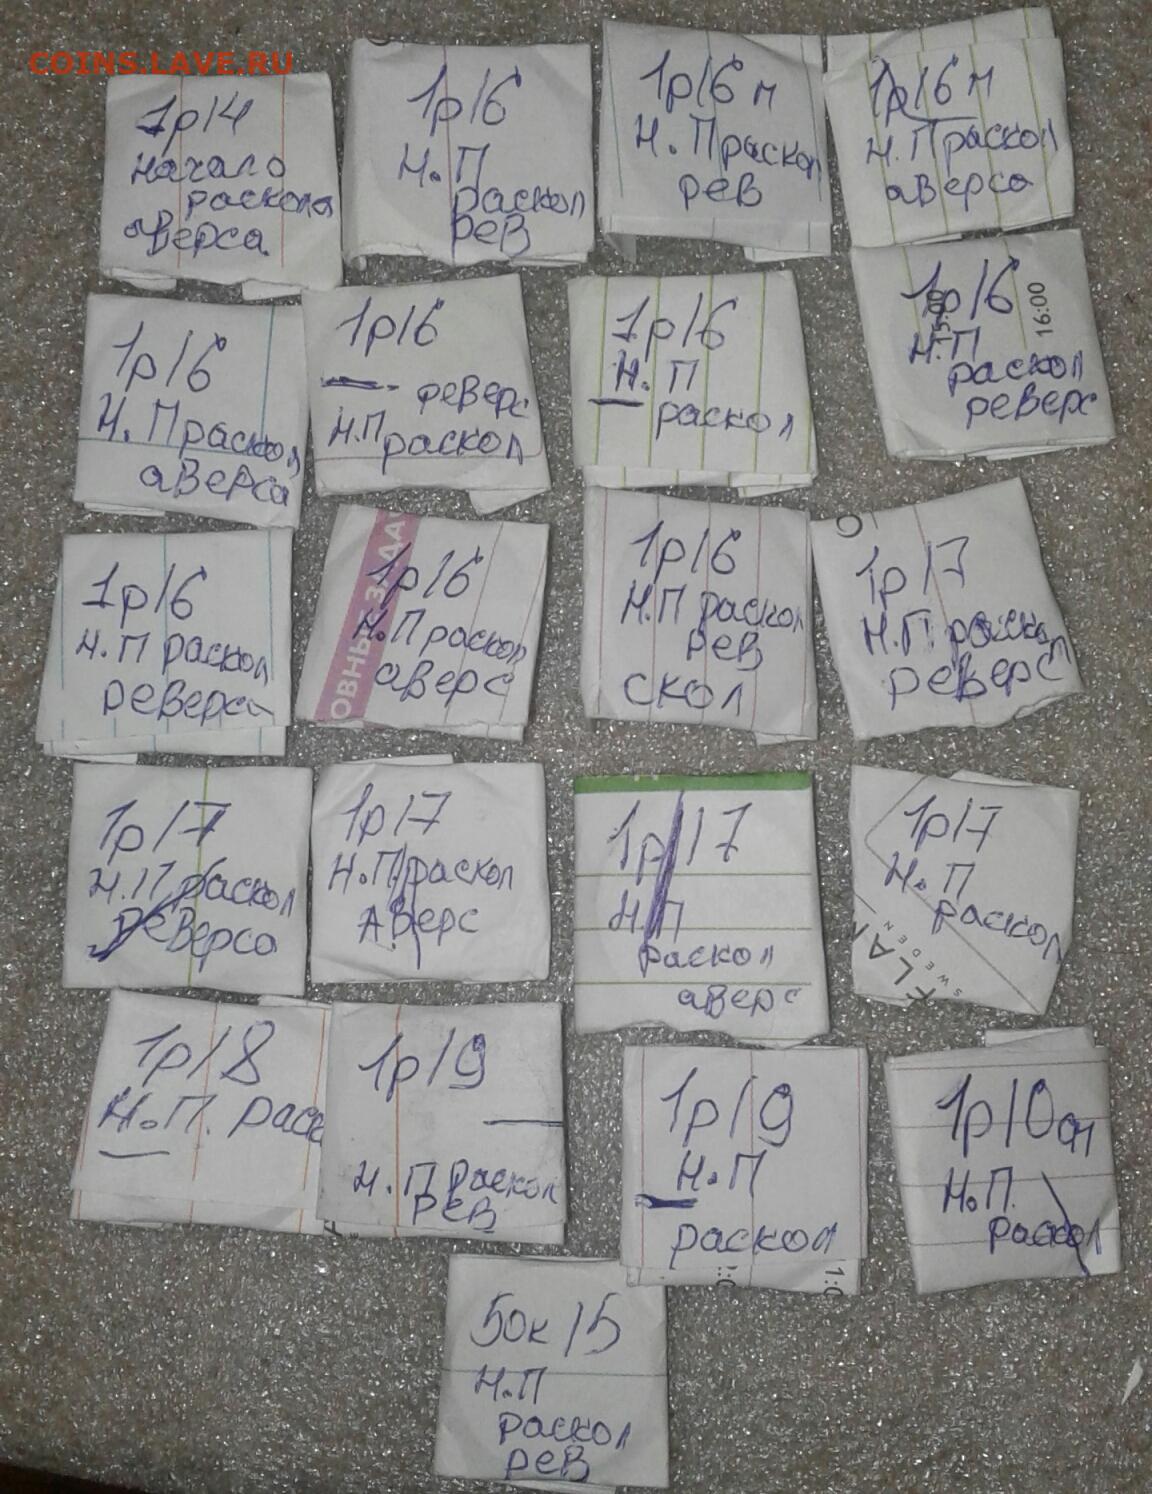 COINS.LAVE.RU
1р14
начало
раскола
аверса
1р16
Н.П
раскол
рев
1р16м
Н.П раскол
рев
1р16м
Н.П раскол
аверса
1р16
Н.П раскол
аверса
1р16
реверс
Н.П раскол
1р16
Н.П
раскол
1р16
15:00
16:00
Н.П
раскол
реверс
1р16
Н.П раскол
реверса
ОВНЫЕ
1р16
Н.П раскол
аверс
1р16
Н.П раскол
рев
скол
1р17
Н.П. раскол
реверс
1р17
Н.П раскол
реверса
1р17
Н.П раскол
Аверс
1р17
Н.П
раскол
аверс
1р17
Н.П
раскол
SWEDEN
1р18
Н.П. раск
1р19
Н.П раскол
рев
1р19
Н.П
раскол
1р10сп
Н.П.
раскол
50к15
Н.П
раскол
рев